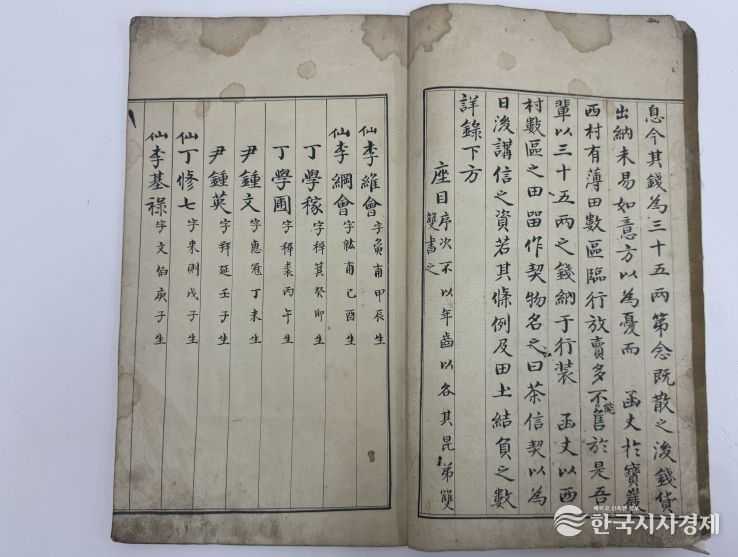 息今其錢為三十五兩第念既散之後錢貨
出納未易如意方以為憂而 函丈於寶巖
西村有薄田數區臨行放賣多不售於是吾
輩以三十五兩之錢納于行裝 函丈以西
村數區之田留作契物名之曰茶信契以為
日後講信之資若其條例及田土結負之數
詳錄下方
座目 序次不以年齒以各其昆弟雙
雙書之
仙 李維會 字 甫甲辰生
仙 李綱會 字紘甫己酉生
丁學稼 字穉箕癸卯生
丁學圃 字穉裘丙午生
尹鍾文 字惠冠丁未生
尹鍾英 字拜延壬子生
仙 丁修七 字來則戊子生
仙 李基祿 字文伯庚子生
한국시사경제